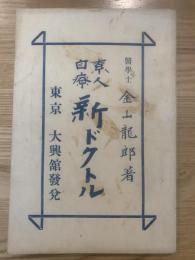 醫學士 金山龍郎著
素人自療 新ドクトル
東京 大興舘發兌